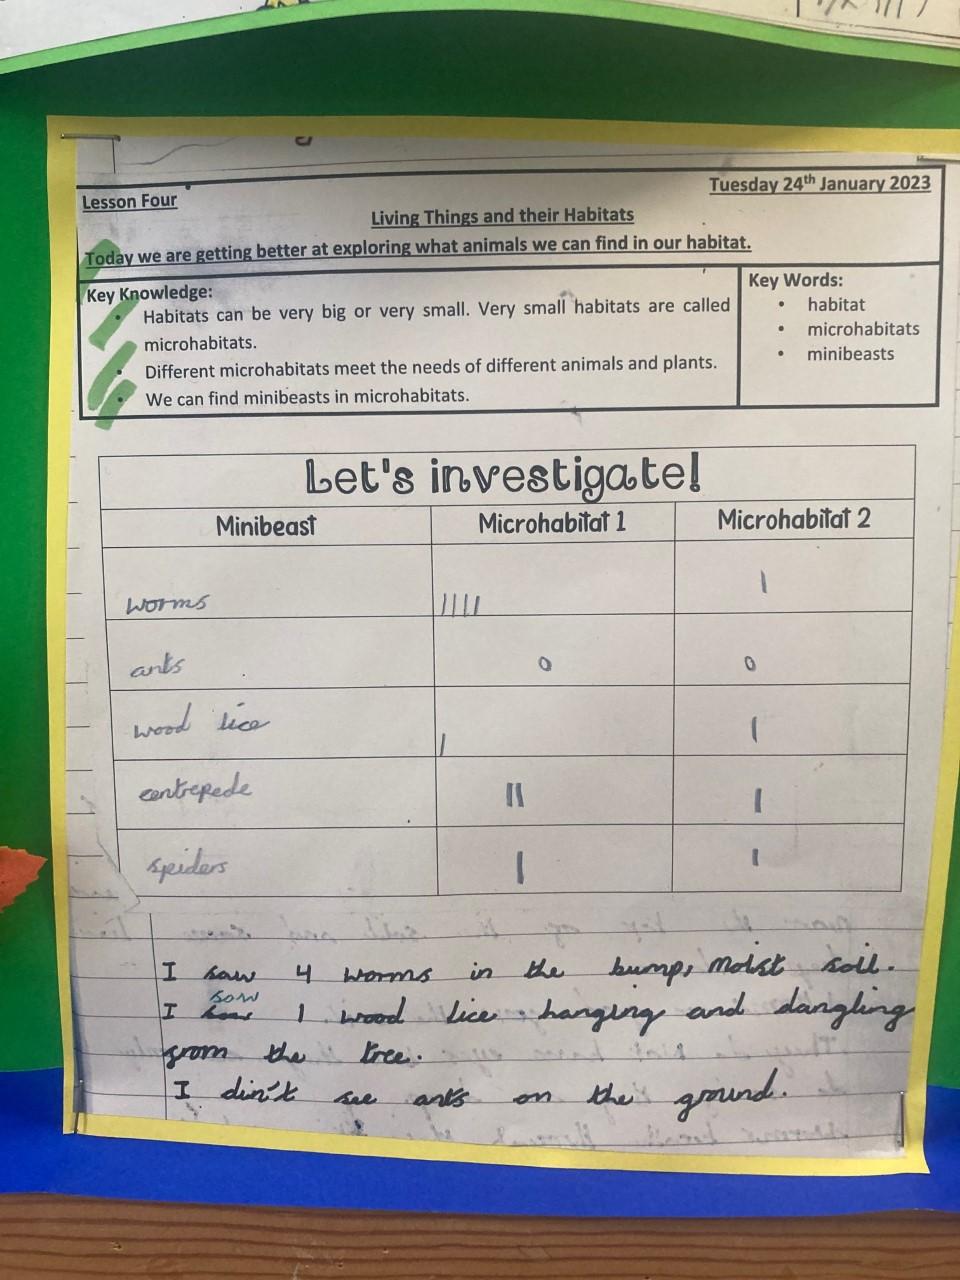 Lesson Four
Tuesday 24th January 2023
Living Things and their Habitats
Today we are getting better at exploring what animals we can find in our habitat.
Key Knowledge:
• Habitats can be very big or very small. Very small habitats are called
microhabitats.
• Different microhabitats meet the needs of different animals and plants.
• We can find minibeasts in microhabitats.
Key Words:
• habitat
• microhabitats
• minibeasts
Let's investigate!
Minibeast Microhabitat 1 Microhabitat 2
worms |||| |
ants 0 0
wood lice | |
centrepede || |
spiders | |
I saw 4 worms in the bump, moist soil.
saw
I 1 wood lice. hanging and dangling
from the tree.
I din't see ants on the ground.